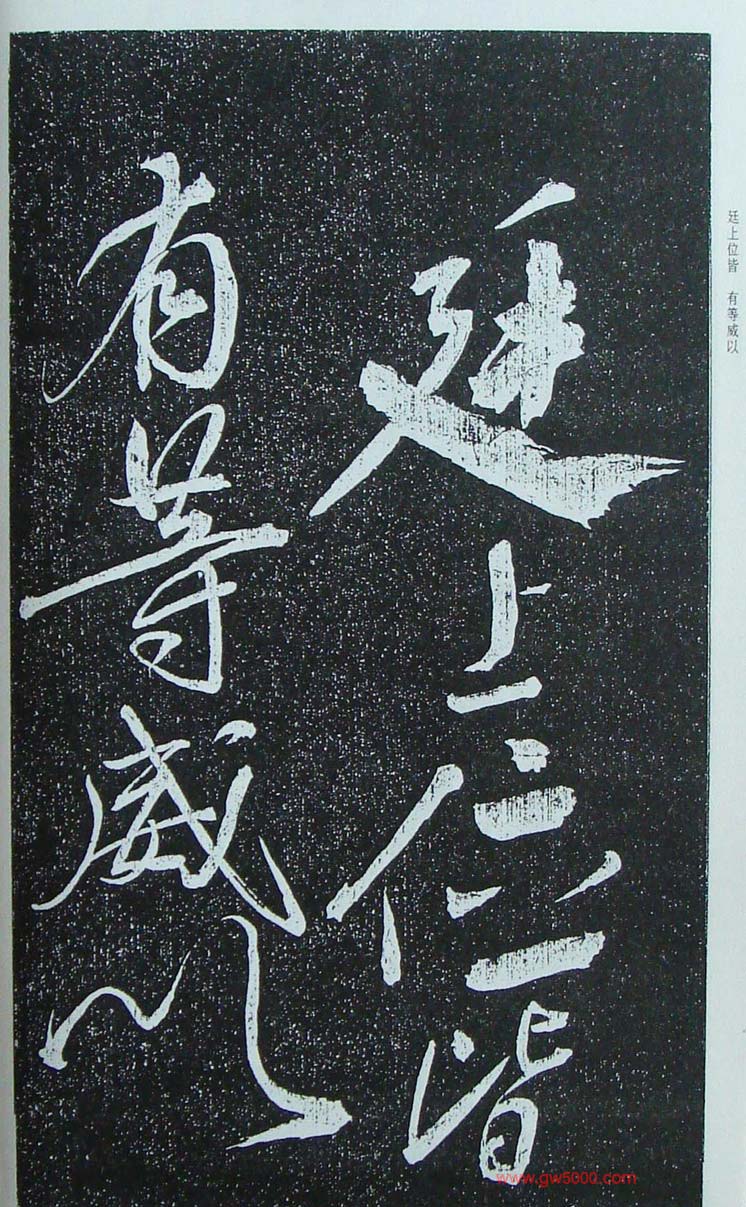 廷上位皆
有等威以
廷上位皆 有等威以
www.gw5000.com